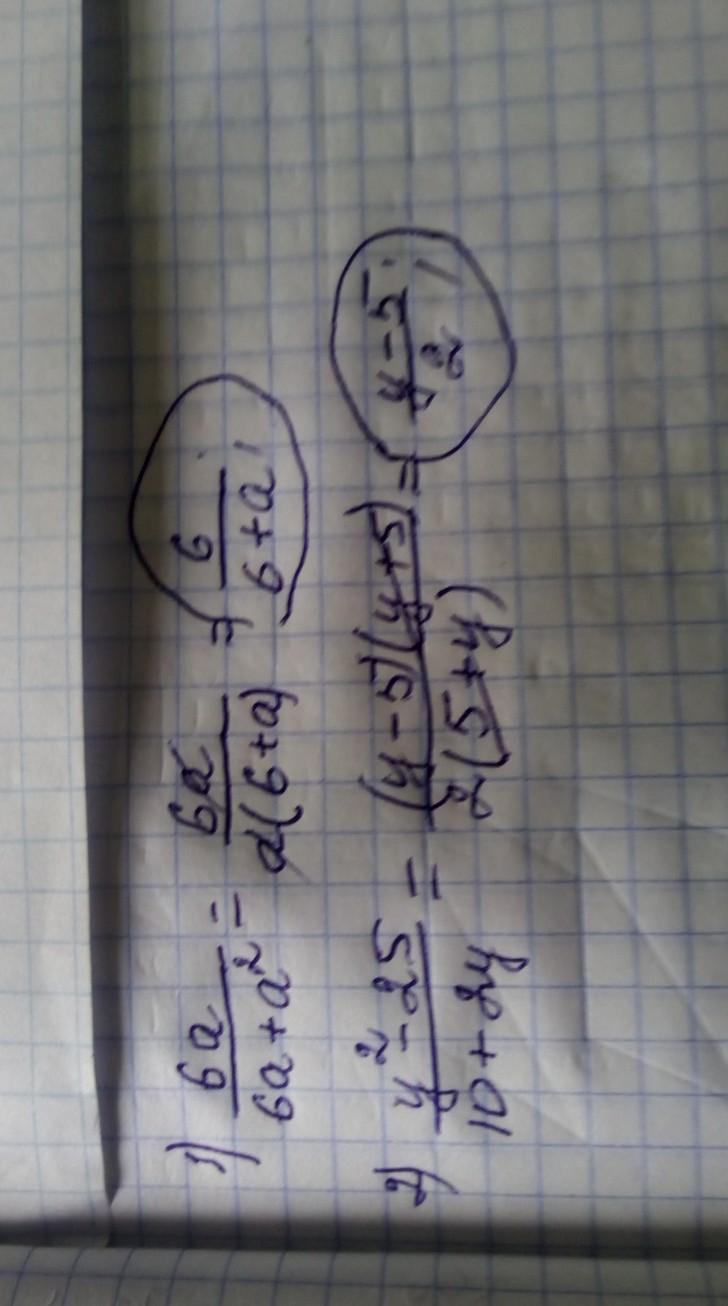 1) 6a/(6a+a²) = 6a/(a(6+a)) = 6/(6+a);
2) (y²-25)/(10+2y) = ((y-5)(y+5))/(2(5+y)) = (y-5)/2;